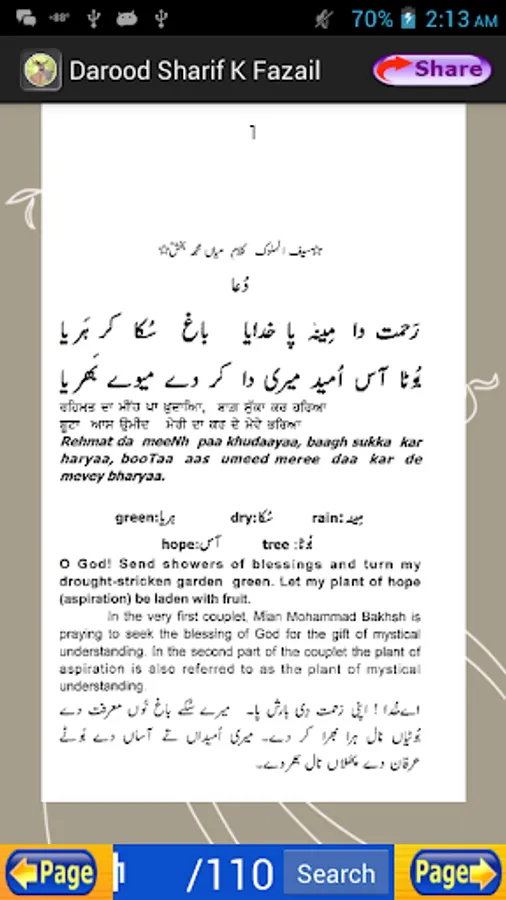 70% 2:13 AM
Darood Sharif K Fazail
Share
1
☆سیف الملوک کلام میاں محمد بخشؒ☆
دُعا
رَحمت دا مِینہہ پا خدایا باغ سُکا کر ہَریا
بُوٹا آس اُمید میری دا کر دے میوے بَھریا
ਰਹਿਮਤ ਦਾ ਮੀਂਹ ਪਾ ਖ਼ੁਦਾਇਆ, ਬਾਗ਼ ਸੁੱਕਾ ਕਰ ਹਰਿਆ
ਬੂਟਾ ਆਸ ਉਮੀਦ ਮੇਰੀ ਦਾ ਕਰ ਦੇ ਮੇਵੇ ਭਰਿਆ
Rehmat da meeNh paa khudaayaa, baagh sukka kar
haryaa, booTaa aas umeed meree daa kar de
mevey bharyaa.
green:ہریا dry:سُکا rain:مِینہہ
hope:آس tree :بُوٹا
O God! Send showers of blessings and turn my
drought-stricken garden green. Let my plant of hope
(aspiration) be laden with fruit.
In the very first couplet, Mian Mohammad Bakhsh is
praying to seek the blessing of God for the gift of mystical
understanding. In the second part of the couplet the plant of
aspiration is also referred to as the plant of mystical
understanding.
اے خُدا ! اپنی رَحمت دِی بارش پا۔ میرے سُکے باغ نُوں معرفت دے
بُوٹیاں نال ہرا بھرا کر دے۔ میری اُمیداں تے آساں دے بُوٹے
عرفان دے پھلاں نال بھر دے۔
Page 1 /110 Search Page